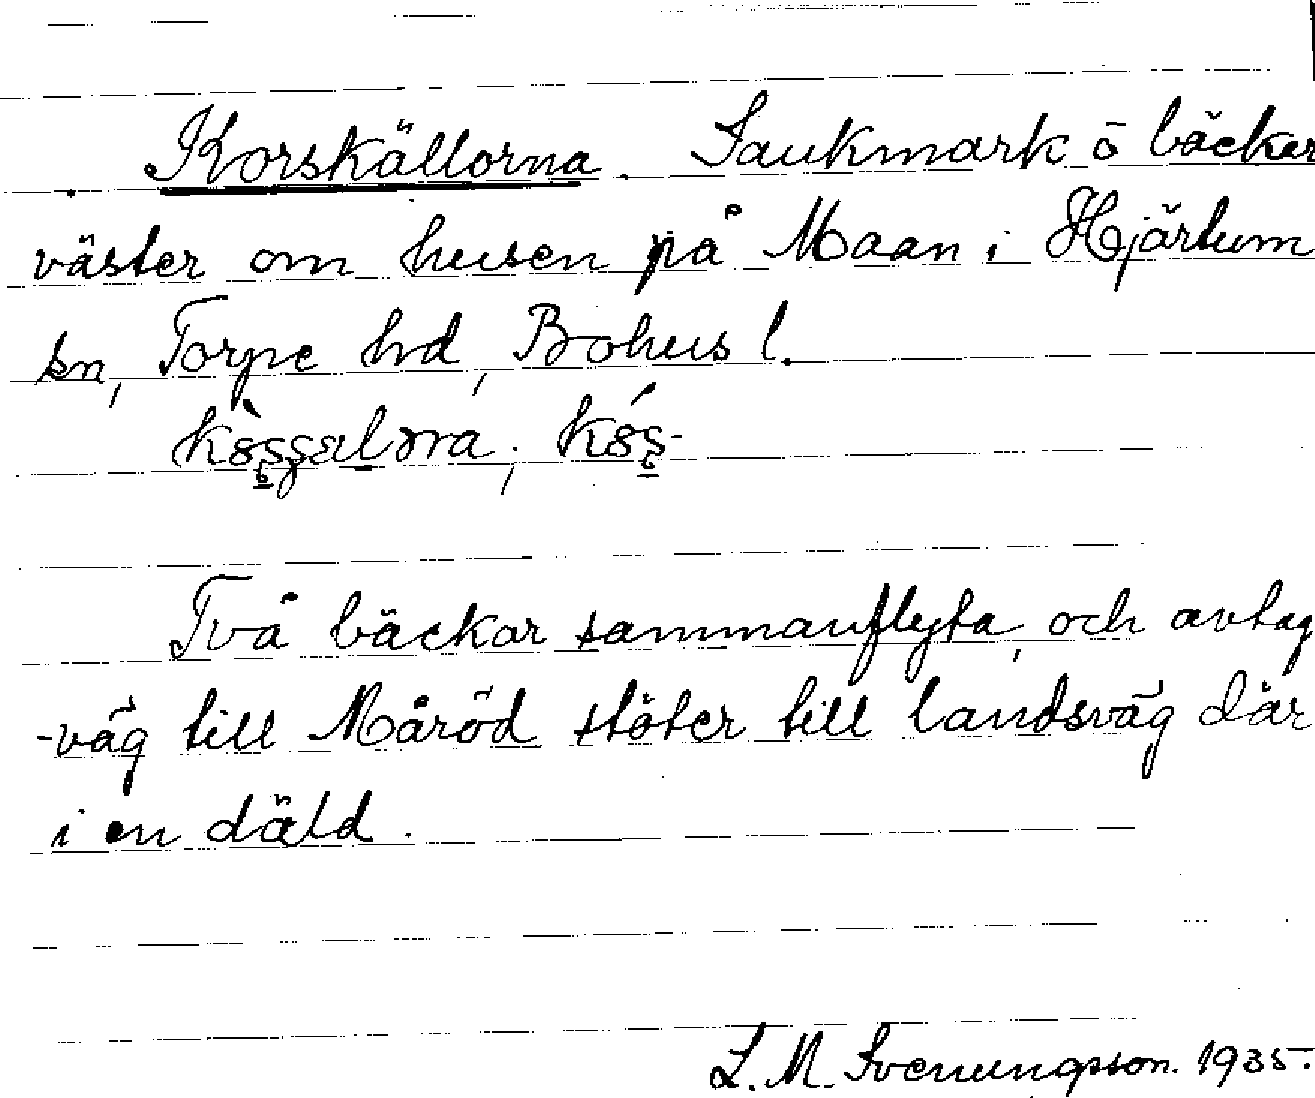 Korskällorna. Saukmark o bäckar
väster om husen på Maan i Hjärtum
sn, Torpe hd, Bohus l.
Två bäckar sammanflyta, och avtag
-väg till Måröd stöter till landsväg där
i en däld.
L. M. Svenungsson. 1935.